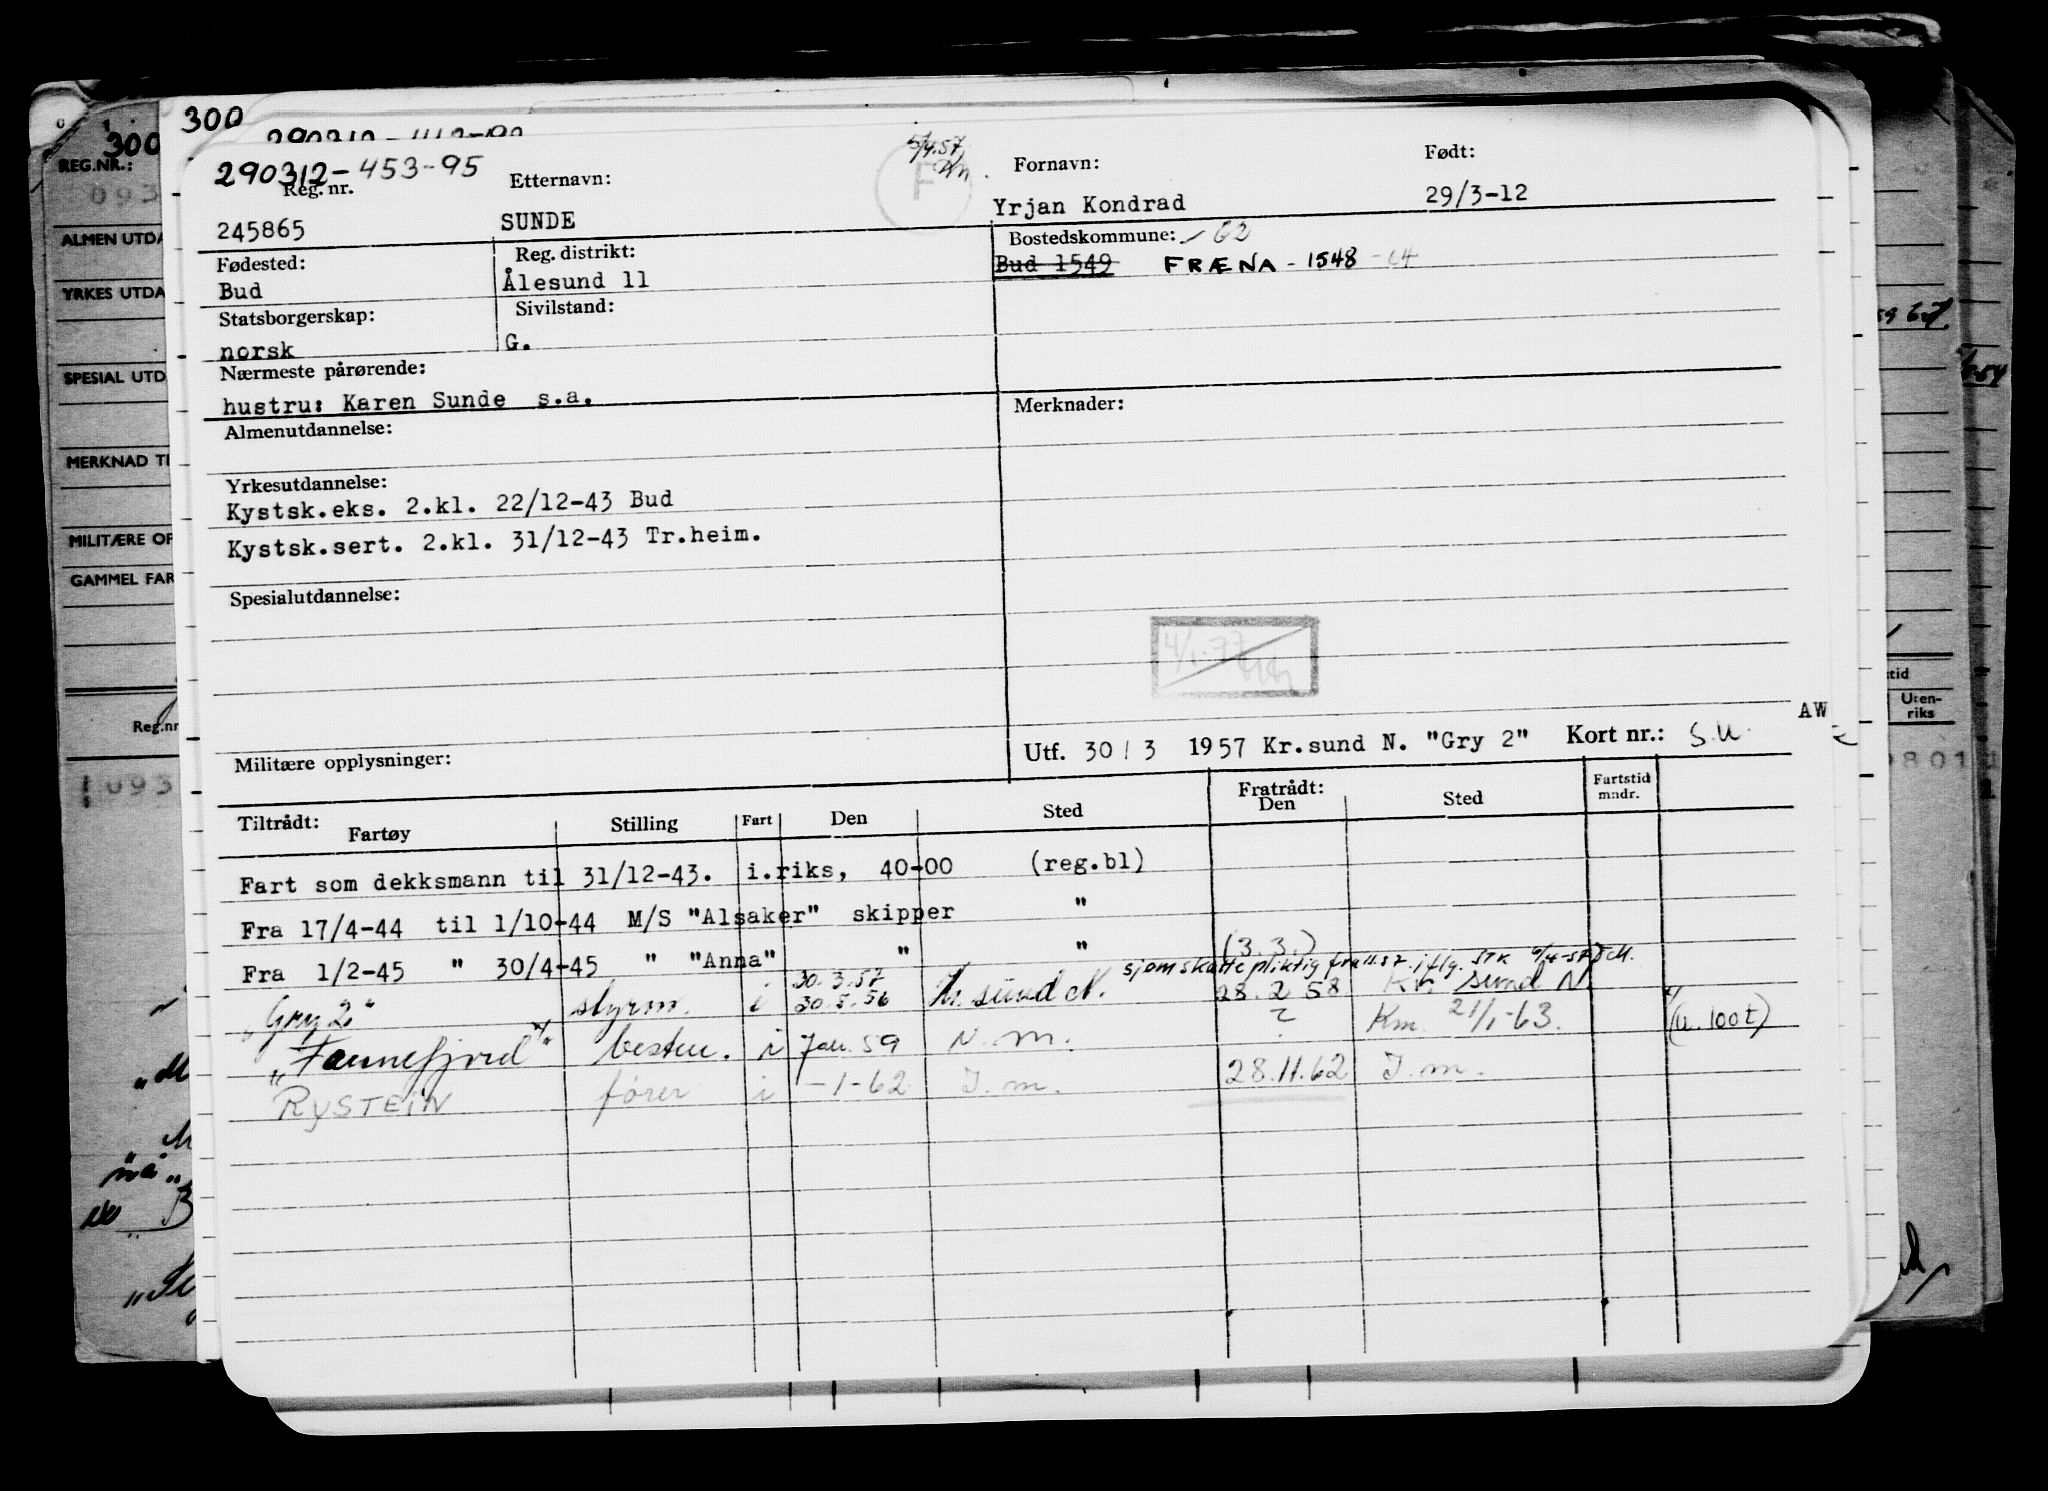 300
300
290312-453-95
5/4.57
F
Reg. nr. Etternavn: Fornavn: Født:
245865 SUNDE Yrjan Kondrad 29/3-12
Fødested: Reg. distrikt: Bostedskommune: - 62
Bud Ålesund 11 Bud 1549 FRÆNA - 1548 - 64
Statsborgerskap: Sivilstand:
norsk G.
Nærmeste pårørende:
hustru: Karen Sunde s.a.
Almenutdannelse: Merknader:
Yrkesutdannelse:
Kystsk.eks. 2.kl. 22/12-43 Bud
Kystsk.sert. 2.kl. 31/12-43 Tr.heim.
Spesialutdannelse:
4/1-77
AW
Militære opplysninger: Utf. 30/3 1957 Kr.sund N. "Gry 2" Kort nr.: S.U.
Tiltrådt: Fartøy Stilling Fart Den Sted Fratrådt: Den Sted Fartstid mndr.
Fart som dekksmann til 31/12-43. i.riks, 40-00 (reg.bl)
Fra 17/4-44 til 1/10-44 M/S "Alsaker" skipper "
Fra 1/2-45 " 30/4-45 " "Anna" " " (3.3.)
sjømskattepliktig fra iflg. STK
30.3.57
"Gry 2" styrm. i 30.8.56 Kr. sund N. 28.2 58 Kr. sund N
"Fannefjord" x/ bestm. i Jan. 59 N.m. ? Km. 21/1-63. x/ (u. 100t)
RYSTEIN fører i -1-62 J.m. 28.11.62 J.m.
REG.NR.:
093
ALMEN UTDA
YRKES UTDA
SPESIAL UTD
MERKNAD TI
MILITÆRE OP
GAMMEL FAR
Reg.nr
093
tid
Uten-
riks